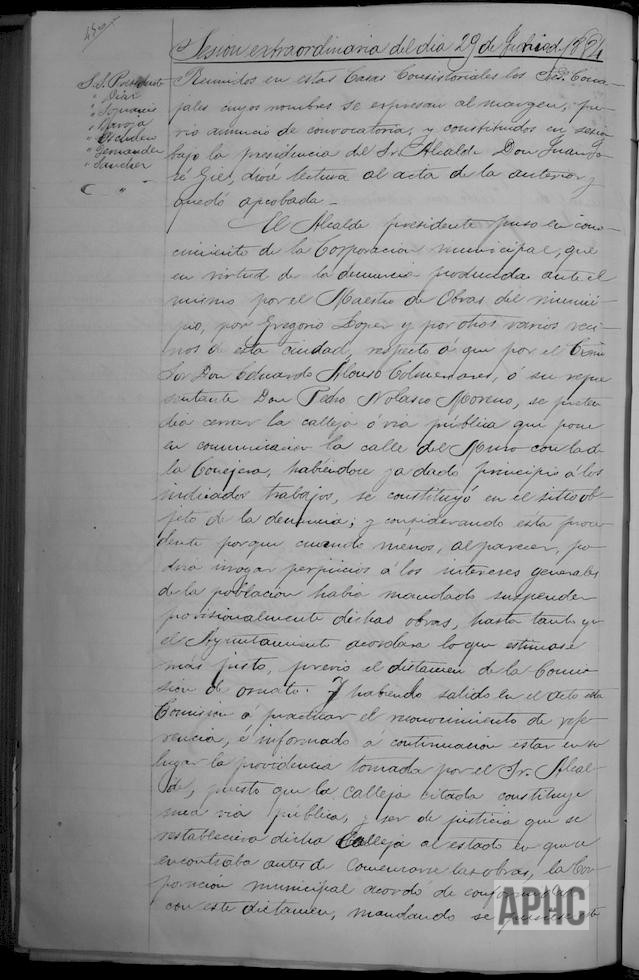 Sesion extraordinaria del dia 29 de Junio de 1884
S.S. Presidente
" Diaz
" Navoja
" Escudero
" Fernandez
" Sanchez
Reunidos en estas Casas Consistoriales los Sres. Conce-
jales cuyos nombres se espresan al margen, pre-
vio anuncio de convocatoria, y constituidos en sesion
bajo la presidencia del Sr. Alcalde Don Juan Jo-
sé Giel, diose lectura al acta de la anterior y
quedó aprobada.-
El Alcalde presidente puso en cono-
cimiento de la Corporacion municipal, que
en virtud de la denuncia producida ante el
mismo por el Maestro de Obras del munici-
pio, por Gregorio Lopez y por otros varios veci-
nos de esta ciudad, respecto á que por el
Don Eduardo Alonso Colmenares, ó su repre-
sentante Don Pedro Nolasco Moreno, se preten-
dia cerrar la calleja ó via pública que pone
en comunicacion la calle del Muro con la de
la Conejera, habiéndose ya dado principio á los
indicados trabajos, se constituyó en el sitio ob-
jeto de la denuncia; y considerando esta proce-
dente porque cuando menos, al parecer, po-
dria irrogar perjuicios á los intereses generales
de la poblacion habia mandado suspender
provisionalmente dichas obras, hasta tanto que
el Ayuntamiento acordara lo que estimase
mas justo, previo el dictamen de la Comi-
sion de ornato. Y habiendo salido en el acto esta
Comision á practicar el reconocimiento de refe-
rencia, é informado á continuacion estar en su
lugar la providencia tomada por el Sr. Alcal-
de, puesto que la calleja citada constituye
una via pública, y ser de justicia que se
restableciera dicha Calleja al estado en que se
encontraba antes de comenzarse las obras, la Cor-
poracion municipal acordó de conformidad
con este dictamen, mandando se
APHC